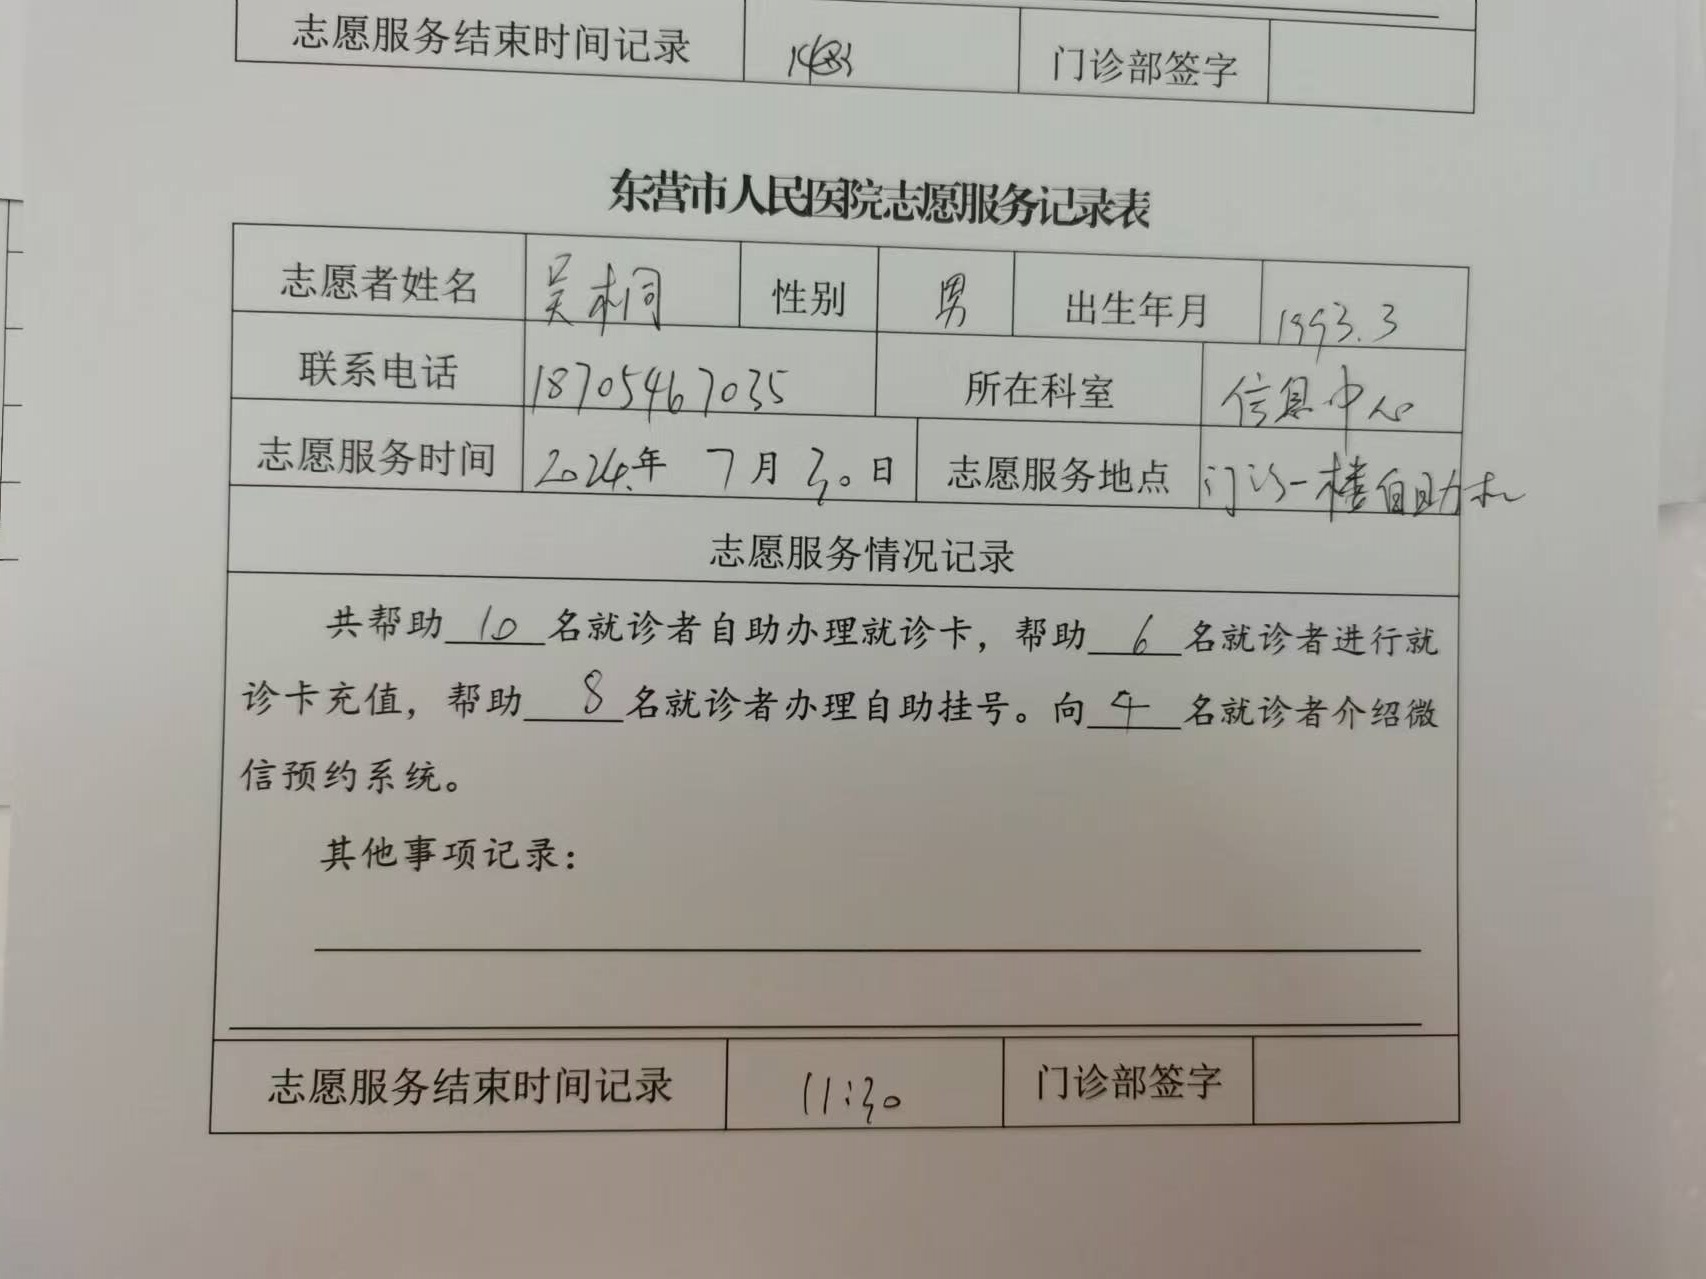 志愿服务结束时间记录 门诊部签字
东营市人民医院志愿服务记录表
志愿者姓名 吴桐 性别 男 出生年月 1993.3
联系电话 18705467035 所在科室 信息中心
志愿服务时间 2024.年 7月30日 志愿服务地点 门诊一楼自助机
志愿服务情况记录
共帮助 10 名就诊者自助办理就诊卡，帮助 6 名就诊者进行就
诊卡充值，帮助 8 名就诊者办理自助挂号。向 4 名就诊者介绍微
信预约系统。
其他事项记录：
志愿服务结束时间记录 11:30 门诊部签字